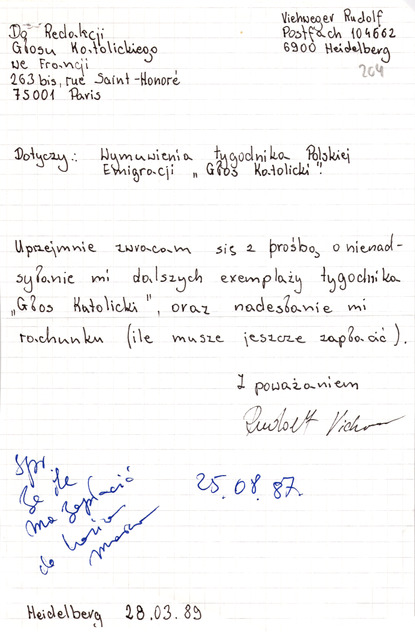 Do Redakcji
Głosu Katolickiego
we Francji
263 bis, rue Saint-Honoré
75001 Paris
Viehweger Rudolf
Postfach 104662
6900 Heidelberg
204
Dotyczy: Wymuwienia tygodnika Polskiej
Emigracji „Głos Katolicki".
Uprzejmnie zwracam się z prośbą o nienad-
syłanie mi dalszych exemplaży tygodnika
„Głos Katolicki", oraz nadesłanie mi
rachunku (ile musze jeszcze zapłacić).
Z poważaniem
Rudolf
spr.
że ile
ma zapłacić
do końca
25.08.87.
Heidelberg 28.03.89